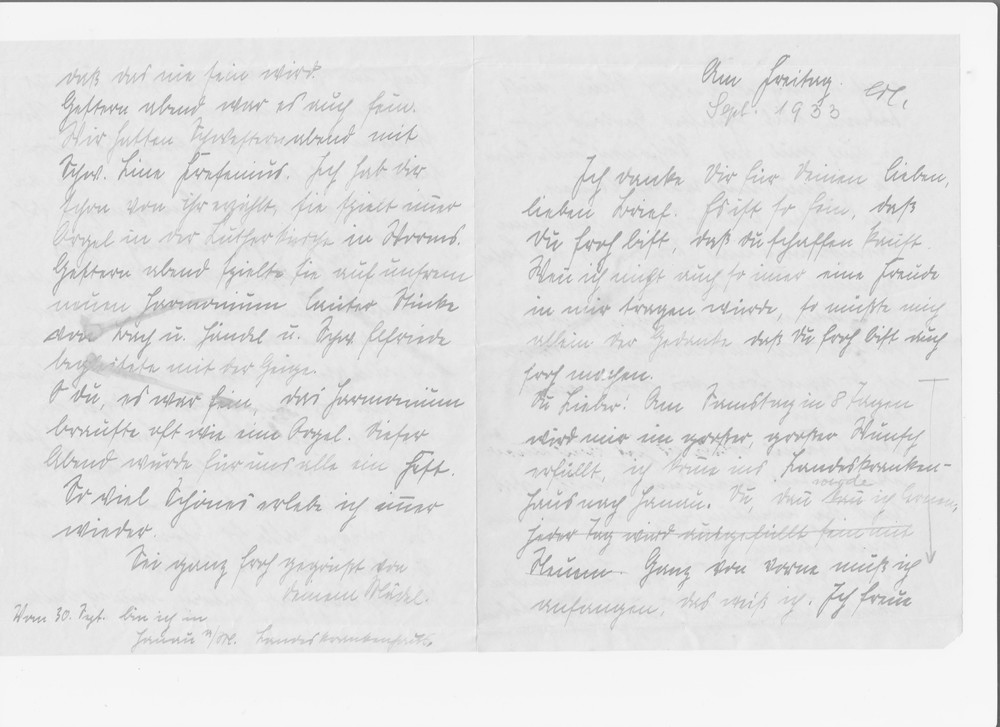 Am Freitag.
Sept. 1933
Ich danke Dir für Deinen lieben,
lieben Brief. Es ist so fein, daß
Du froh bist, daß du schaffen kannst.
Wenn ich nicht auch so immer eine Freude
in mir tragen würde, so müßte mich
allein der Gedanke daß Du froh bist auch
froh machen.
Du Lieber! Am Samstag in 8 Tagen
wird mir ein großer, großer Wunsch
erfüllt, ich komme ins Landeskranken-
haus nach Hanau. Du, dann werde ich lernen,
jeder Tag wird ausgefüllt sein mit
Neuem. Ganz von vorne muß ich
anfangen, das weiß ich. Ich freue
daß das nie sein wird.
Gestern abend war es auch fein.
Wir hatten Schwesternabend mit
Schw. Line Fresenius. Ich hab dir
schon von ihr erzählt, sie spielt immer
Orgel in der Lutherkirche in Worms.
Gestern abend spielte sie auf unsrem
neuen Harmonium lauter Stücke
von Bach u. Händel u. Schw. Elfriede
begleitete mit der Geige.
O du, es war fein, das Harmonium
brauste oft wie eine Orgel. Dieser
Abend wurde für uns alle ein Fest.
So viel Schönes erlebe ich immer
wieder.
Sei ganz froh gegrüßt von
Deinem Mädel.
Vom 30. Sept. bin ich in
Hanau a/M. Landeskrankenhaus.